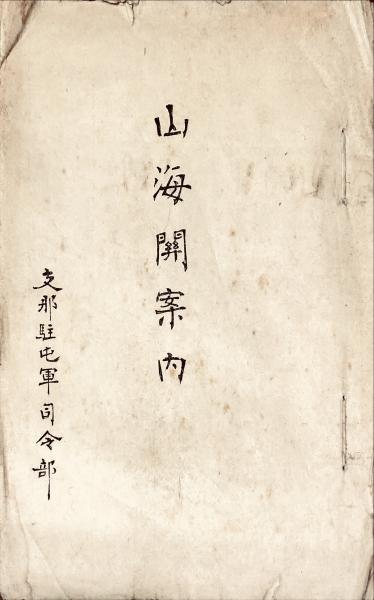 山海關案内
支那駐屯軍司令部